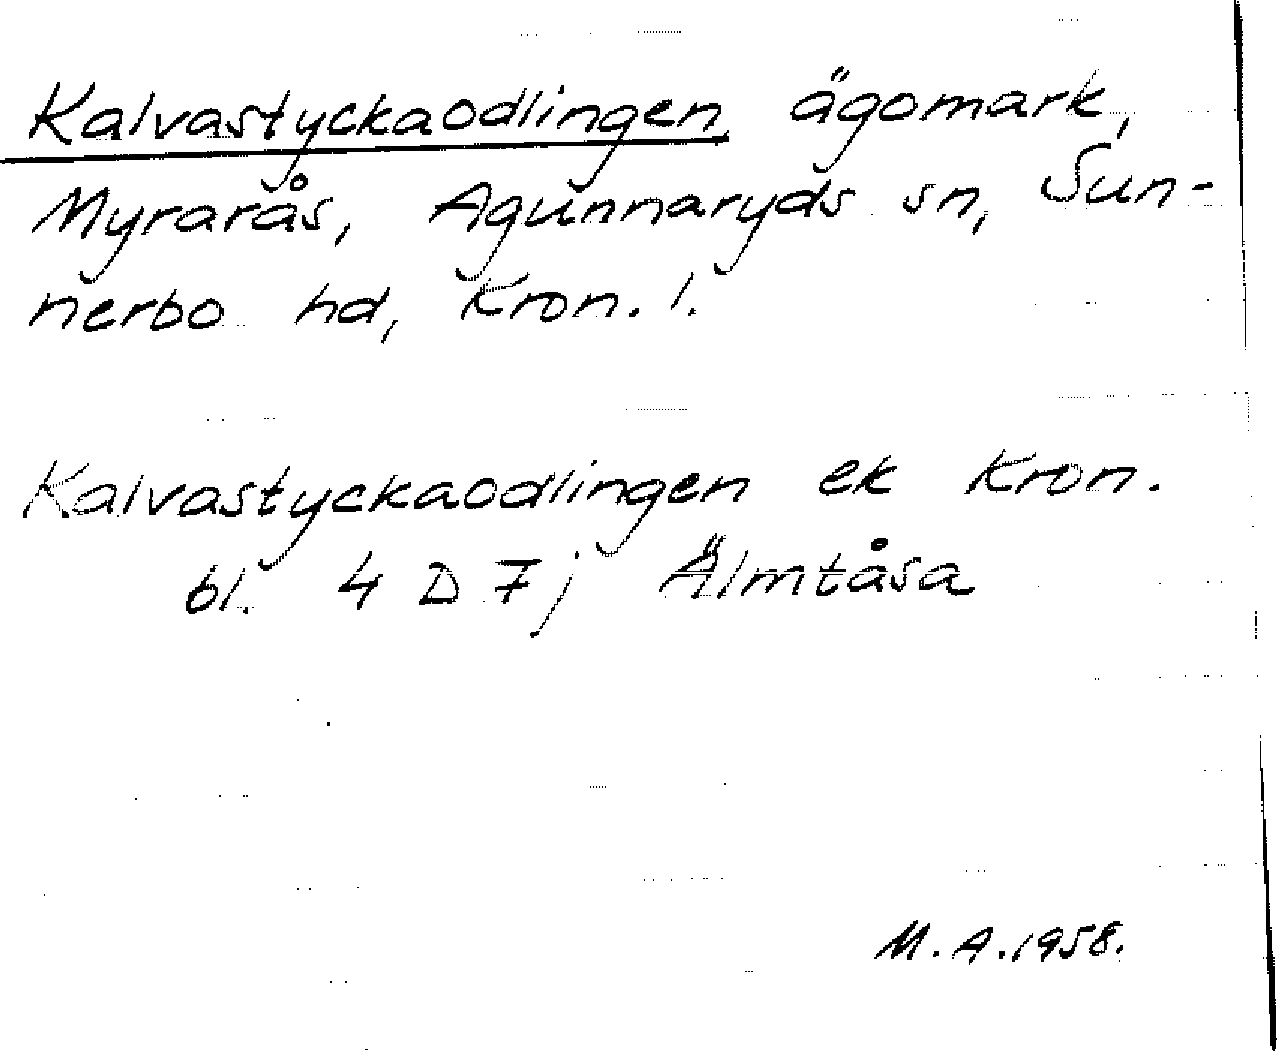 Kalvastyckaodlingen, ägomark,
Myrarås, Agunnaryds sn, Sun-
nerbo hd, Kron. l.
Kalvastyckaodlingen ek Kron.
bl. 4 D 7j Älmtåsa
M.A.1958.